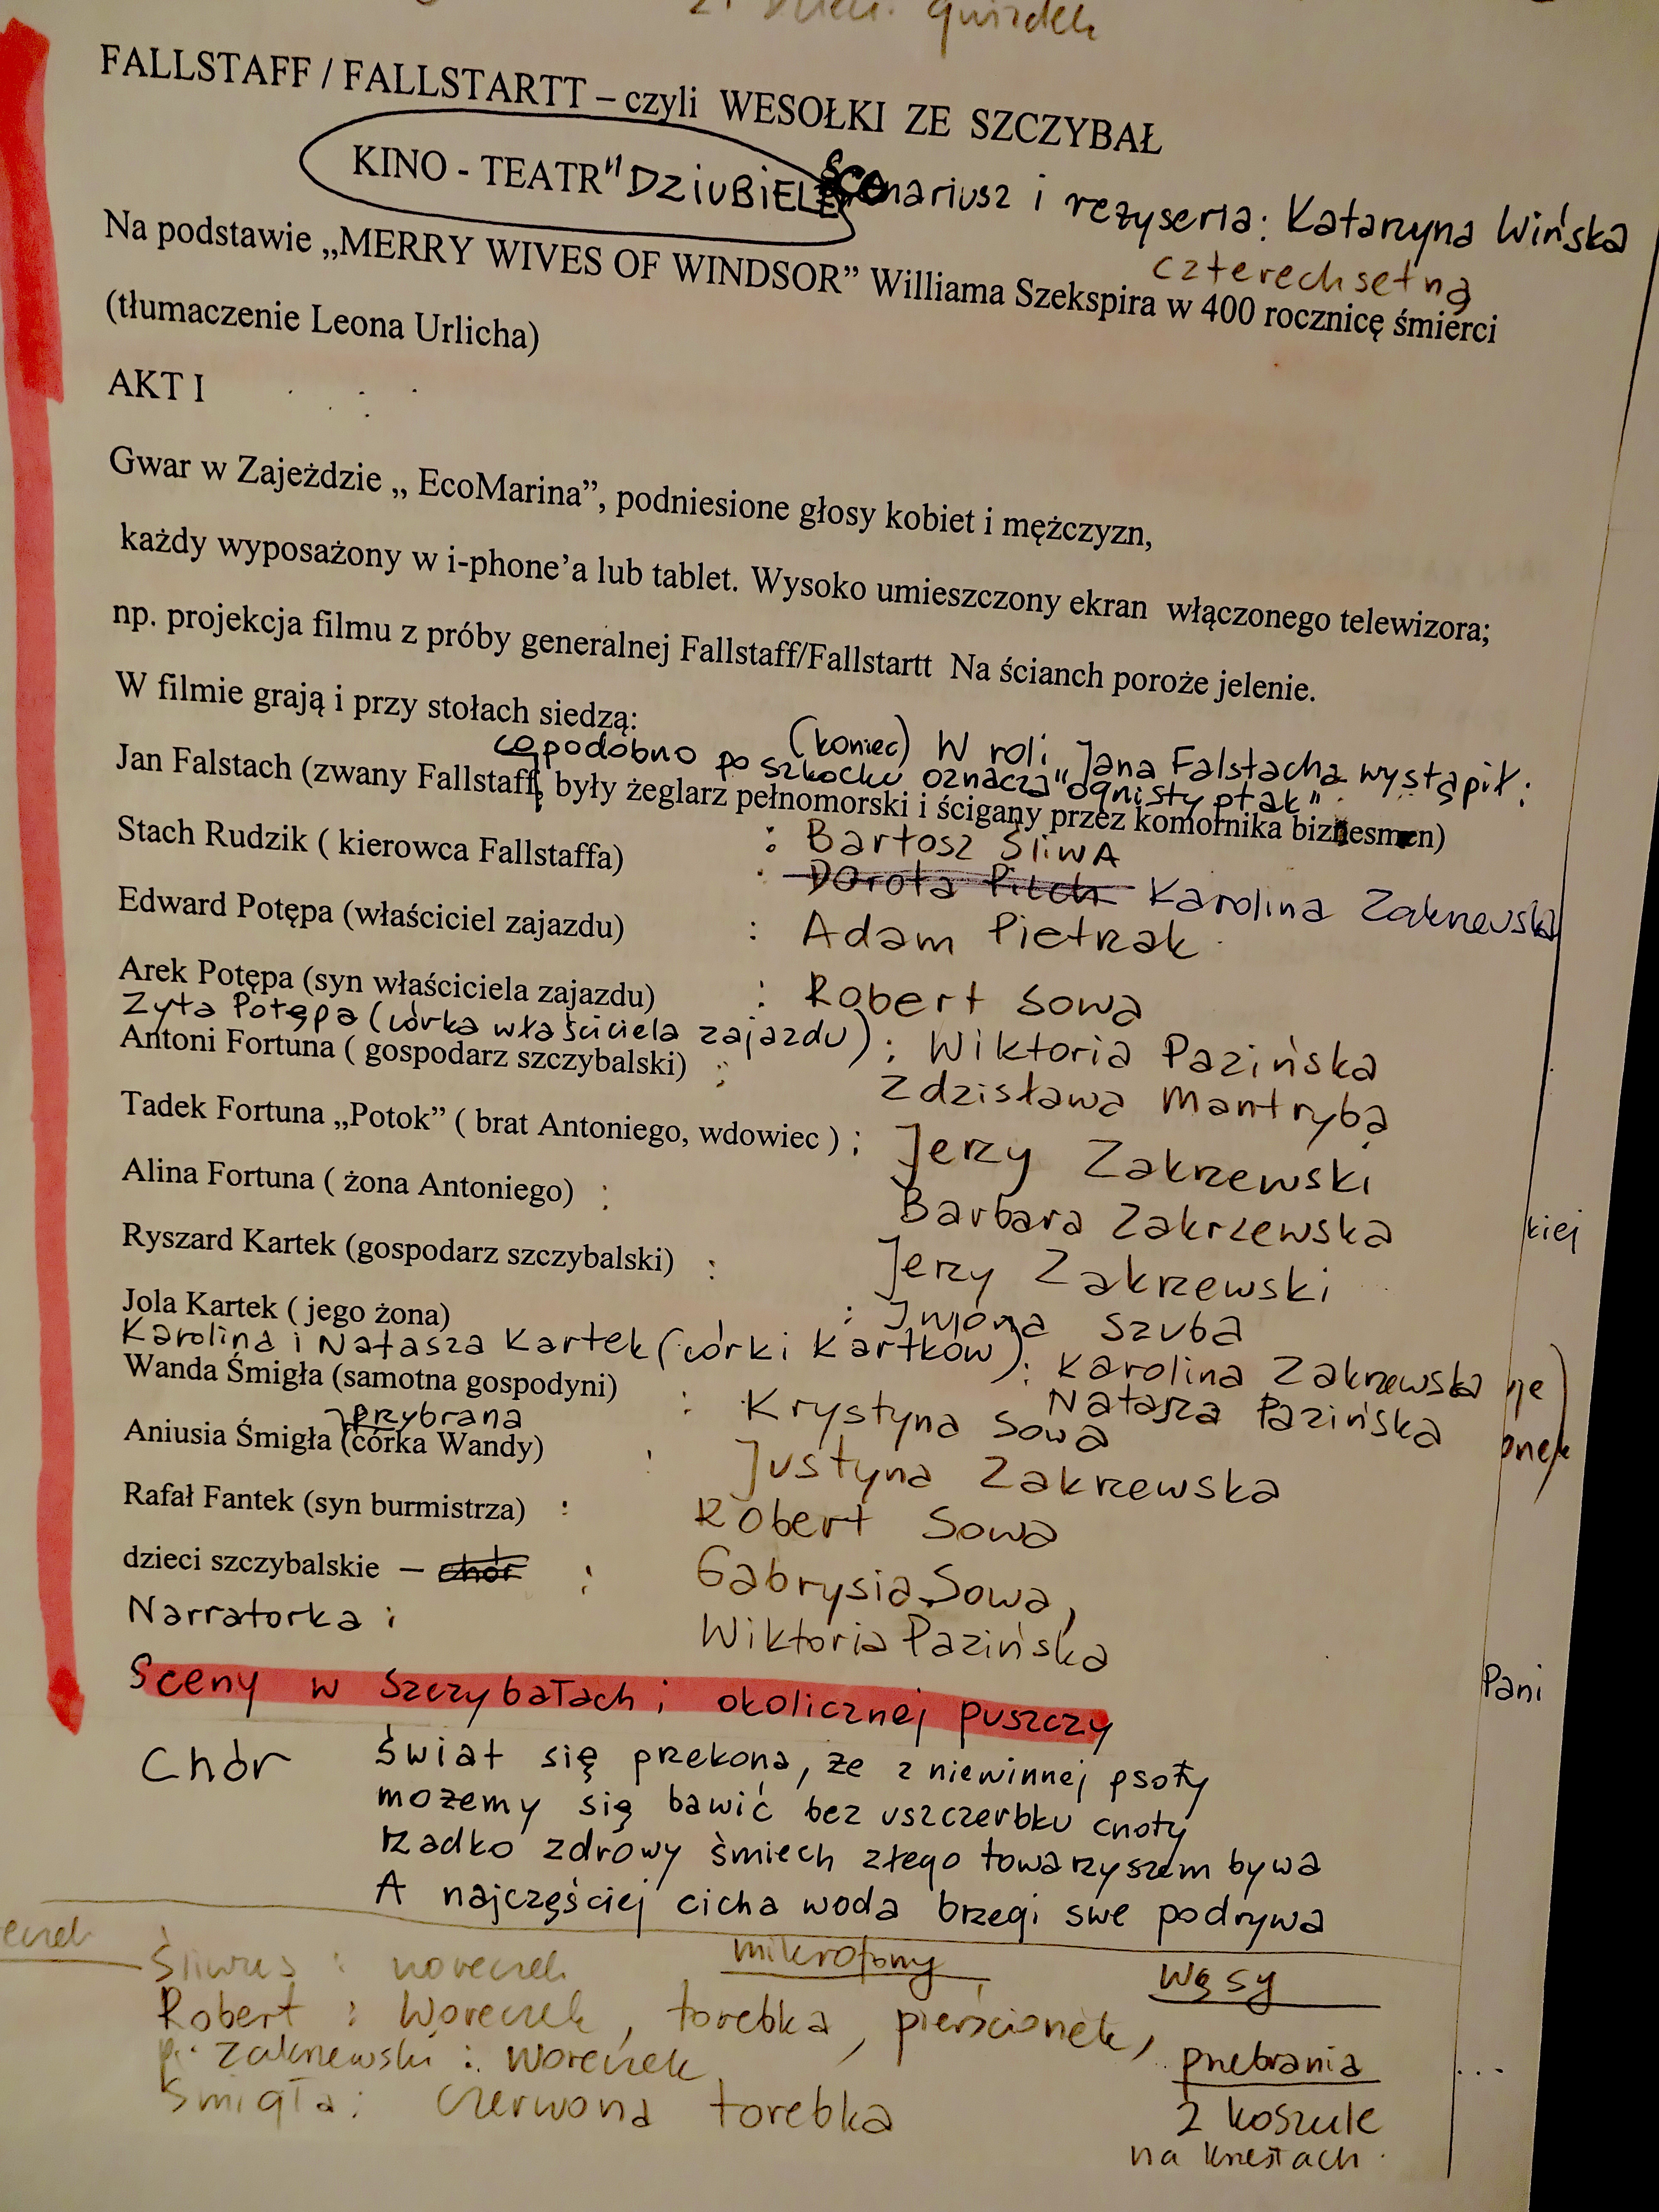 gwizdek
FALLSTAFF / FALLSTARTT – czyli WESOŁKI ZE SZCZYBAŁ
KINO - TEATR "DZIUBIELE Scenariusz i reżyseria: Katarzyna Wińska
czterechsetną
Na podstawie „MERRY WIVES OF WINDSOR” Williama Szekspira w 400 rocznicę śmierci
(tłumaczenie Leona Urlicha)
AKT I
Gwar w Zajeździe „ EcoMarina”, podniesione głosy kobiet i mężczyzn,
każdy wyposażony w i-phone’a lub tablet. Wysoko umieszczony ekran włączonego telewizora;
np. projekcja filmu z próby generalnej Fallstaff/Fallstartt Na ścianch poroże jelenie.
W filmie grają i przy stołach siedzą:
(koniec) W roli Jana Falstacha wystąpił:
co podobno po szkocku oznacza "ognisty ptak"
Jan Falstach (zwany Fallstaff, były żeglarz pełnomorski i ścigany przez komornika biznesmen)
: Bartosz ŚliwA
Stach Rudzik ( kierowca Fallstaffa) : Dorota Pitch Karolina Zakrzewska
Edward Potępa (właściciel zajazdu) : Adam Pietrzak
Arek Potępa (syn właściciela zajazdu) : Robert Sowa
Zyta Potępa (córka właściciela zajazdu) : Wiktoria Pazińska
Antoni Fortuna ( gospodarz szczybalski) : Zdzisława Mantrybą
Tadek Fortuna „Potok” ( brat Antoniego, wdowiec ) : Jerzy Zakrzewski
Alina Fortuna ( żona Antoniego) : Barbara Zakrzewska
kiej
Ryszard Kartek (gospodarz szczybalski) : Jerzy Zakrzewski
Jola Kartek ( jego żona) : Iwona Szuba
Karolina i Natasza Kartek (córki Kartków) : Karolina Zakrzewska
Natasza Pazińska
Wanda Śmigła (samotna gospodyni) : Krystyna Sowa
przybrana
Aniusia Śmigła (córka Wandy) : Justyna Zakrzewska
Rafał Fantek (syn burmistrza) : Robert Sowa
dzieci szczybalskie – chór : Gabrysia Sowa,
Narratorka : Wiktoria Pazińska
Pani
Sceny w Szczybałach i okolicznej puszczy
Chór Świat się przekona, że z niewinnej psoty
możemy się bawić bez uszczerbku cnoty
rzadko zdrowy śmiech złego towarzyszem bywa
A najczęściej cicha woda brzegi swe podrywa
Śliwus : woreczek mikrofony wąsy
Robert : Woreczek, torebka, pierścionek,
p. Zakrzewski : Woreczek przebrania ...
Śmigła : czerwona torebka 2 koszule
na krzesłach